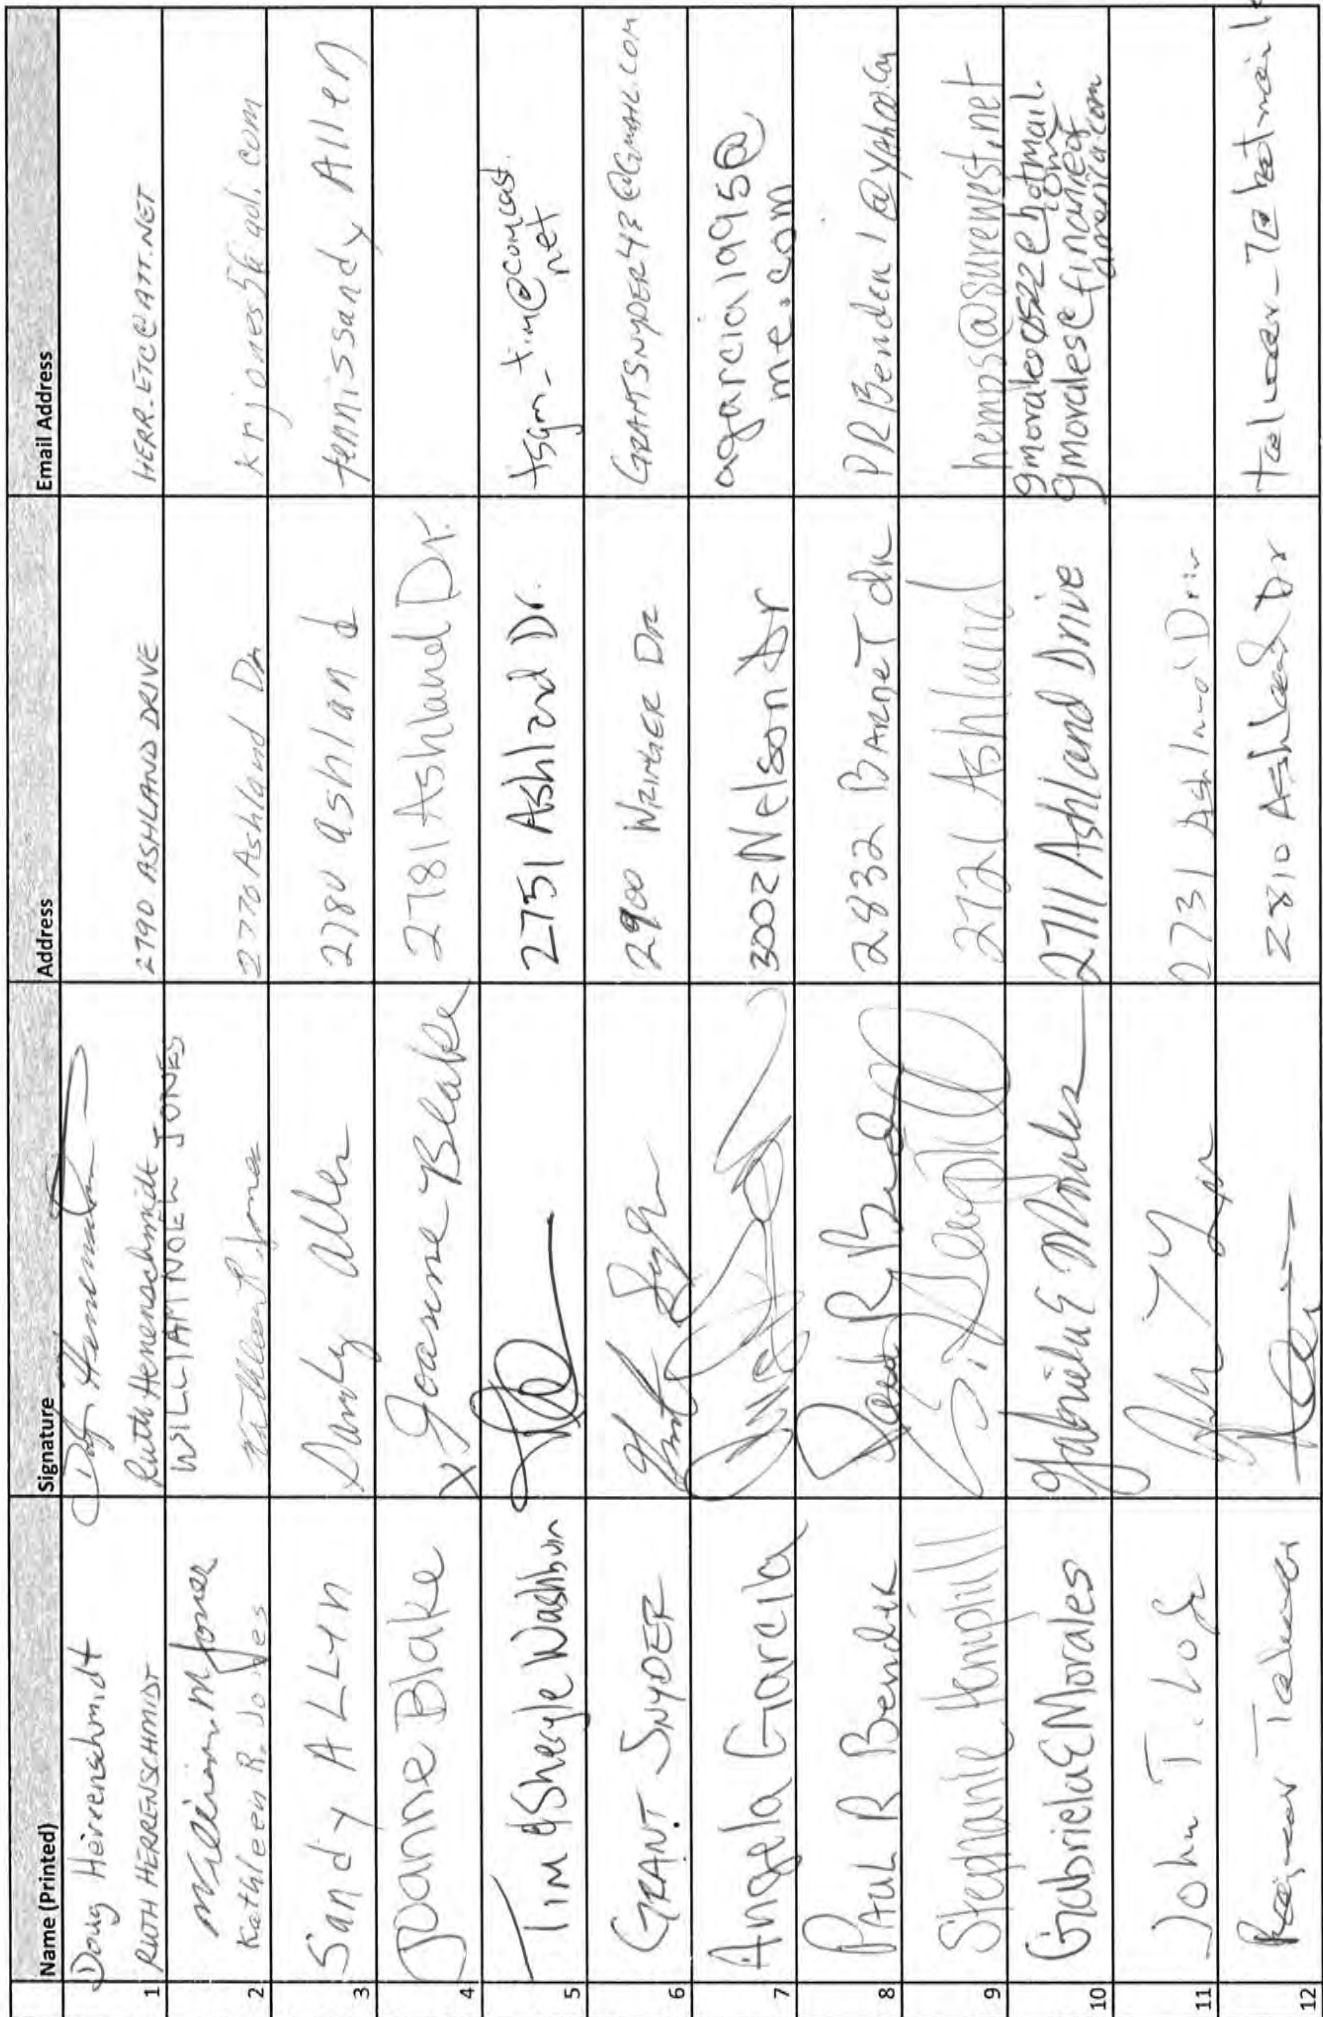 Name (Printed) Signature Address Email Address
Doug Herrenschmidt
1 RUTH HERRENSCHMIDT Ruth Herrenschmidt 2790 ASHLAND DRIVE HERR.ETC@ATT.NET
William M Jones WILLIAM NOEL JONES
2 Kathleen R. Jones Kathleen R. Jones 2770 Ashland Dr krjones56@aol.com
3 Sandy ALLyn Sandy Allen 2780 ashland tennissandy Allen
4 Joanne Blake x Joanne Blake 2781 Ashland Dr.
5 Tim & Sheryle Washburn 2751 Ashland Dr. tsgm-tim@comcast.
net
6 GRANT SNYDER Grant Snyder 2900 WRINGER DR GRANTSNYDER48@GMAIL.COM
7 Angela Garcia 3002 Nelson Dr agarcia1995@
me.com
8 PAUL R Bender 2832 BARNET DR PRBender1@yahoo.com
9 Stephanie Hemphill S. Hemphill 2721 Ashland hemps@surewest.net
10 Gabriela E Morales Gabriela E Morales 2711 Ashland Drive gmorales0522@hotmail.
com
gmorales@financeof
america.com
11 John T. 2731 Ashland Driv
12 2810 Ashland Dr